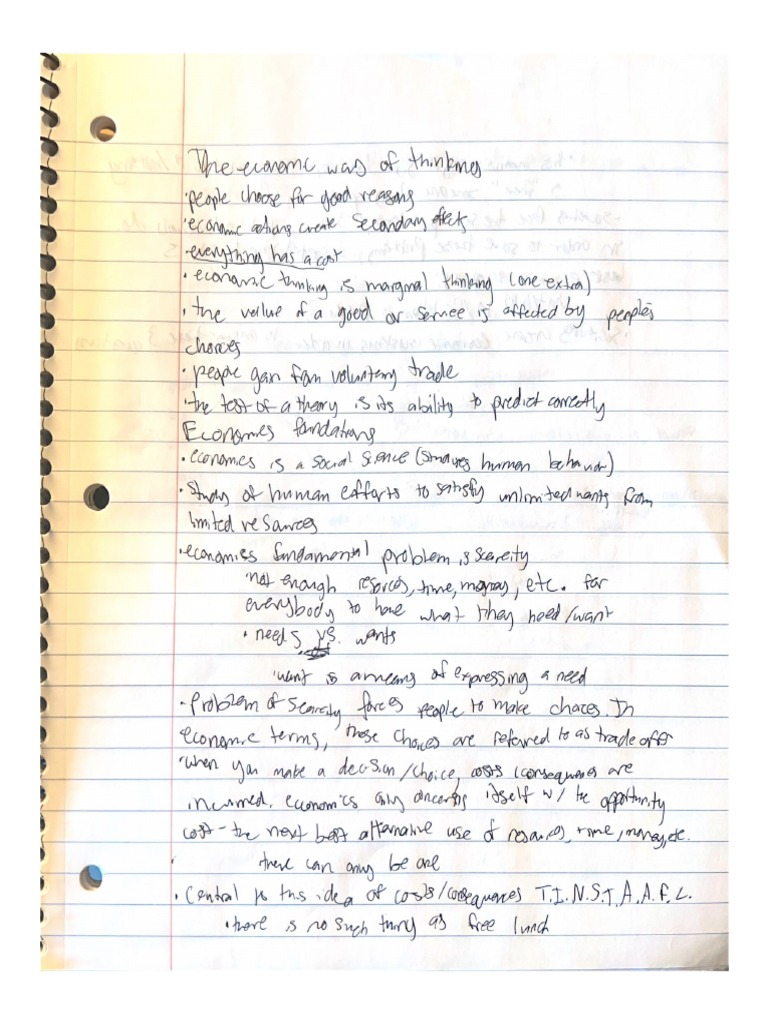 The economic way of thinking
·people choose for good reasons
·economic actions create secondary effects
·everything has a cost
·economic thinking is marginal thinking (one extra)
·the value of a good or service is affected by people's
choices
·people gain from voluntary trade
·the test of a theory is its ability to predict correctly
Economics foundations
·economics is a social science (studies human behavior)
·Study of human efforts to satisfy unlimited wants from
limited resources
·economics fundamental problem is scarcity
·not enough resources, time, money, etc. for
everybody to have what they need/want
·needs vs. wants
·want is a means of expressing a need
·Problem of scarcity forces people to make choices. In
economic terms, these choices are referred to as trade offs
·when you make a decision/choice, costs/consequences are
incurred. economics only concerns itself w/ the opportunity
cost - the next best alternative use of resources, time, money, etc.
· there can only be one
·Central to this idea of costs/consequences T.I.N.S.T.A.A.F.L.
·there is no such thing as free lunch